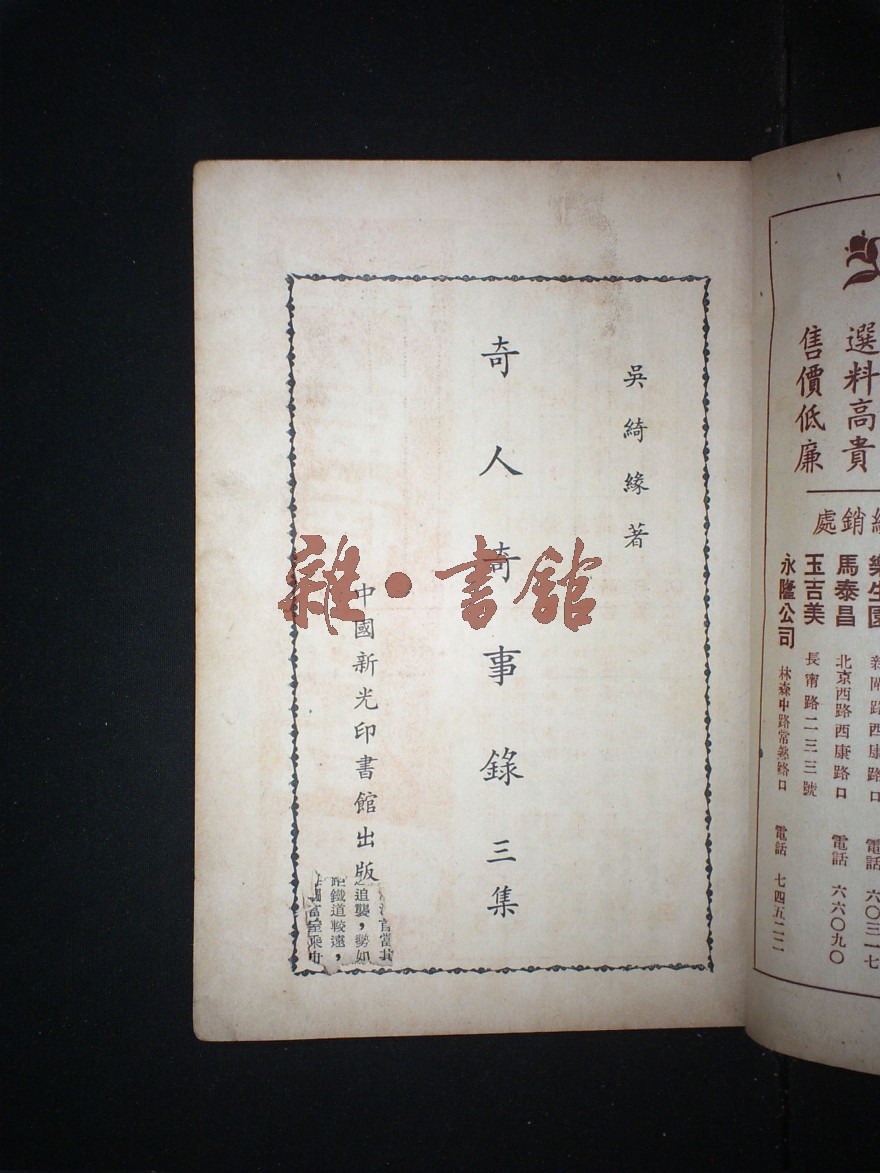 選料高貴
售價低廉
銷處
西康路口 電話 六〇三一七
馬泰昌 北京西路西康路口 電話 六六〇九〇
玉吉美 長甯路二三三號
永隆公司 林森中路常熟路口 電話 七四五二二
吳綺緣著
奇人奇事錄三集
中國新光印書館出版
追襲，勢如
距鐵道較遠，
雜·書館